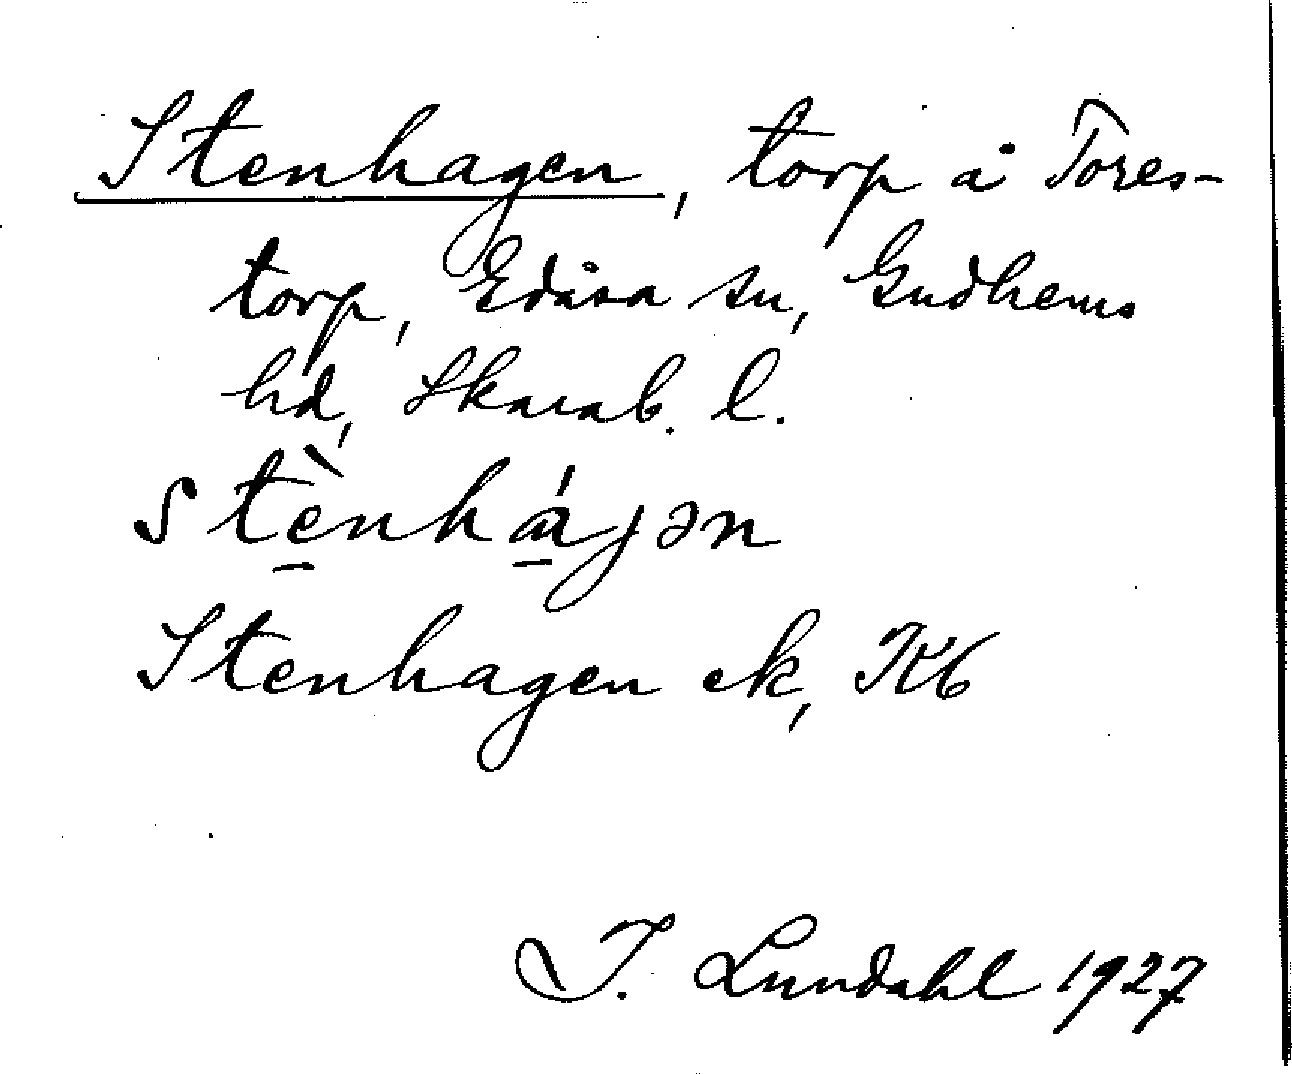 Stenhagen, torp å Tores-
torp, Edåsa sn, Gudhems
hd, Skarab. l.
stè̱nhá̱jən
Stenhagen ek, JKb
I. Lundahl 1927